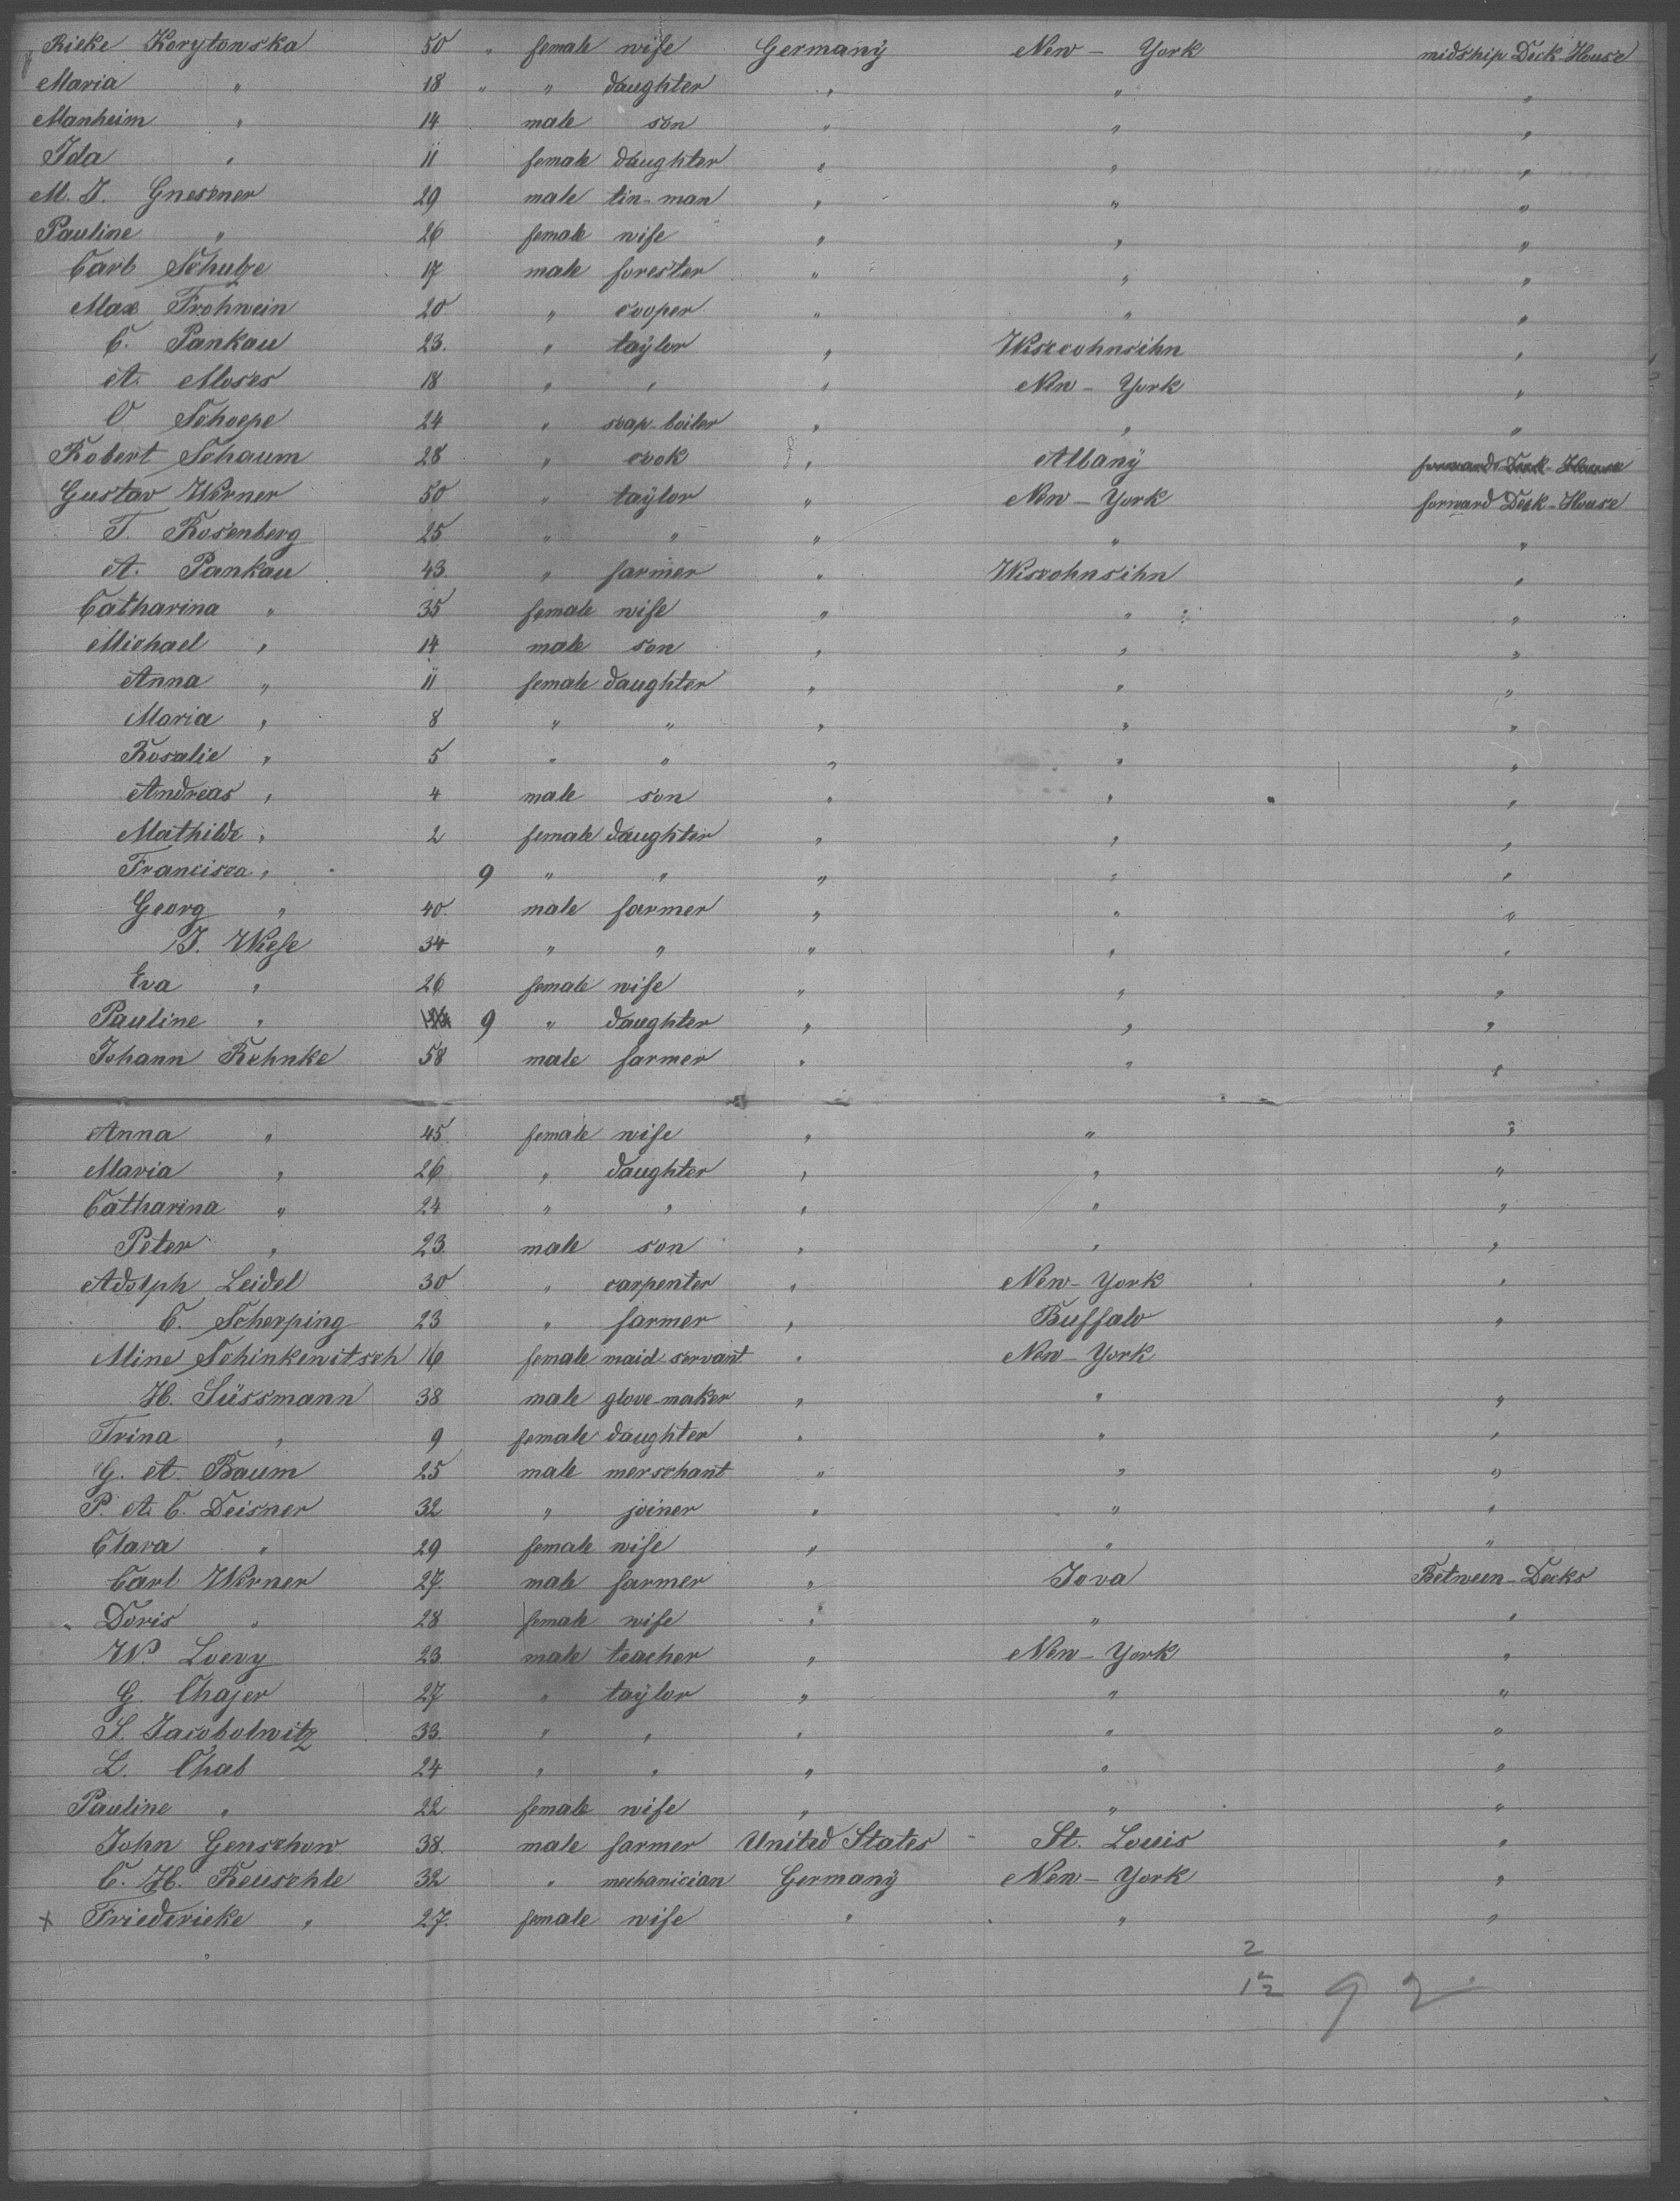 Rieke Korytowska 50 " female wife Germany New-York midship Deck-House
Maria " 18 " " daughter " " "
Manheim " 14 male son " " "
Ida " 11 female daughter " " "
M. J. Gnesener 29 male tin-man " " "
Pauline " 26 female wife " " "
Carl Schulze 17 male forester " " "
Max Frohwein 20 " cooper " " "
C. Pankau 23. " taylor " Wisccohnsihn "
A. Moses 18 " " " New-York "
O Schoepe 24 " soap-boiler " " "
Robert Schaum 28 " cook " Albany forward Deck-House
Gustav Werner 50 " taylor " New-York forward Deck-House
T. Rosenberg 25 " " " " "
A. Pankau 43. " farmer " Wiscohnsihn "
Catharina " 35 female wife " " "
Michael " 14 male son " " "
Anna " 11 female daughter " " "
Maria " 8 " " " " "
Rosalie " 5 " " " " "
Andreas " 4 male son " " "
Mathilde " 2 female daughter " " "
Francisca " 9 " " " " "
Georg " 40 male farmer " " "
J. Wiese 34 " " " " "
Eva " 26 female wife " " "
Pauline " 9 " daughter " " "
Johann Rehnke 58 male farmer " " "
Anna " 45 female wife " " "
Maria " 26 " daughter " " "
Catharina " 24 " " " " "
Peter " 23. male son " " "
Adolph Leidel 30 " carpenter " New-York "
C. Scherping 23 " farmer " Buffalo "
Mine Schinkewitsch 16 female maid-servant " New-York
H. Süssmann 38 male glove-maker " " "
Trina " 9 female daughter " " "
G. A. Baum 25 male merschant " " "
P. A. C. Deisner 32 " joiner " " "
Clara " 29 female wife " " "
Carl Werner 27. male farmer " Jova Between-Decks
Doris " 28 female wife " " "
W. Loevy 23 male teacher " New-York "
G. Chajer 27 " taylor " " "
S. Jacobolwitz 33. " " " " "
L. Chab 24 " " " " "
Pauline " 22 female wife " " "
John Genschow 38. male farmer United States - St. Louis "
C. H. Reuschle 32 " mechanician Germany New-York "
x Friedericke " 27. female wife " " "
2
92